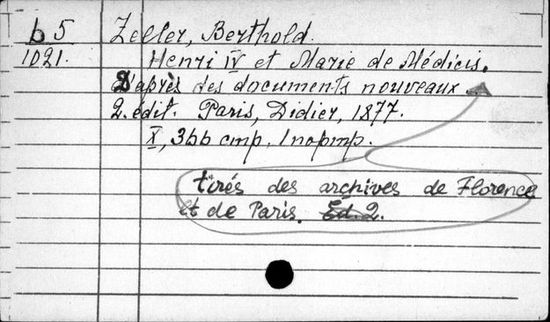 б 5
1021.
Zeller, Berthold.
Henri IV et Marie de Médicis.
D'après des documents nouveaux
2. édit. Paris, Didier, 1877.
X, 366 стр. 1 портр.
tirés des archives de Florence
et de Paris. Ed. 2.